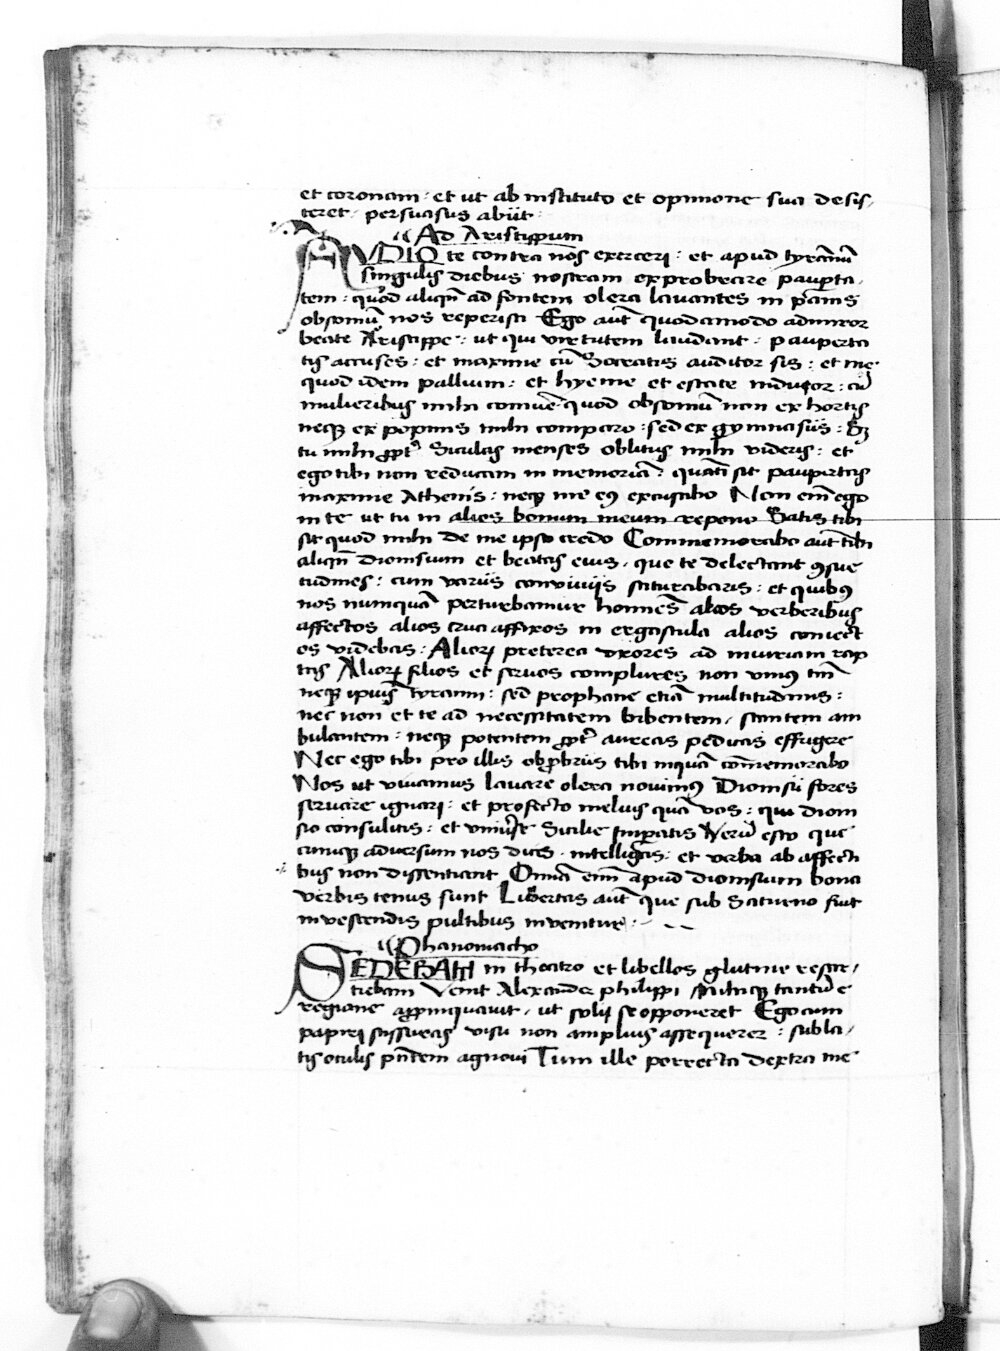 et coronam · et ut ab instituto et opinione sua desis,
teret · persuasus abiit ·
Ad Aristippum
AVDIO te contra nos exerceri · et apud tyrãnũ
singulis diebus nostram exprobrare paupta,
tem : quod aliqñ ad fontem olera lavantes in panis
obsoniũ nos reperisti Ego aut̃ quodamodo admiror
beate Aristippe : ut qui virtutem laudant : pauperta
tis accuses : et maxime cũ Socratis auditor sis : et me
quod idem pallium : et hyeme et estate induor : cũ
mulieribus mihi conuẽ quod obsoniũ non ex hortis
neqȝ ex popinis mihi comparo : sed ex gymnasiis : Sȝ
tu mihi ppt̃ Siculas menses oblitus mihi videris : et
ego tibi non reducam in memoriã : quãti sit paupertas
maxime Athenis : neqȝ me eꝰ excusabo Non em̃ ego
in te ut tu in alios bonum meum repono Satis tibi
sit quod mihi de me ipso credo Commemorabo aut̃ tibi
aliqñ dionisium et beatas eius · que te delectant ꝯsue
tudines : cum variis conviviis saturabaris : et quibꝰ
nos numquã perturbamur homines̃ alios verberibus
affectos alios cruci affixos in ergastula alios coniect
os videbas : Alioꝝ preterea uxores ad iniuriam rap
tas Alioꝝ filios et servos complures non unius tm̃
neqȝ ipius tyranni : sed prophane etiã multitudinis :
nec non et te ad necessitatem bibentem, stantem am
bulantem : neqȝ potentem ppt̃ aureas pedicas effugere
Nec ego tibi pro illis obprobriis tibi inquã comemorabo
Nos ut vivamus lavare olera novimꝰ Dionisii fores
servare ignari : et profecto melius quã vos : qui dioni
sio consulitis : et universe Sicilie Imperatis Verũ esto que
cunqȝ adversum nos dicas · intelligas : et verba ab affecti
bus non dissentiant Omnia em̃ apud dionisium bona
verbis tenus sunt Libertas aut̃ que sub Saturno fuit
in vescendis pultibus invenitur :
Phanomacho
SEDEBAM in theatro et libellos glutine resar,
tiebam Venit Alexander philippi
regione appinquavit, ut solij se opponeret Ego cum
papiri scissuras visu non amplius assequerer : subla,
tis oculis pñtem agnovi Tum ille porrecta dextra me